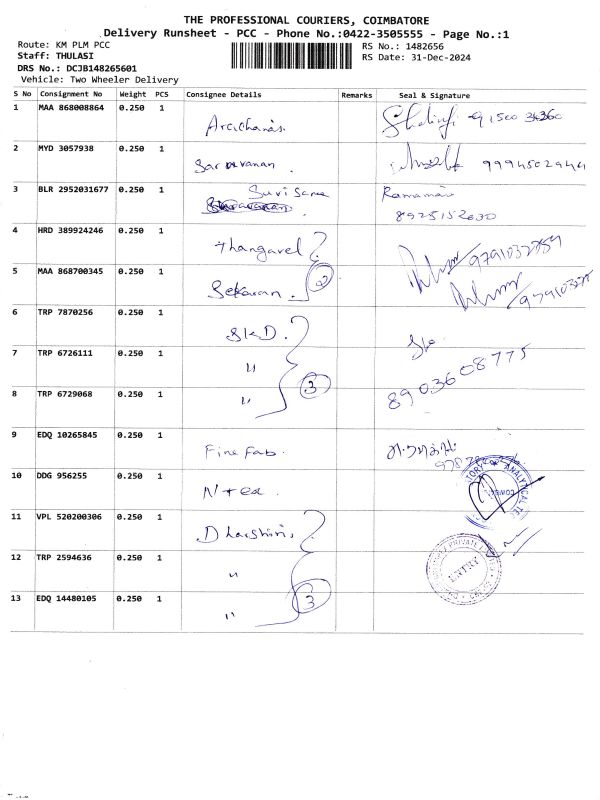 THE PROFESSIONAL COURIERS, COIMBATORE
Delivery Runsheet - PCC - Phone No.:0422-3505555 - Page No.:1
Route: KM PLM PCC RS No.: 1482656
Staff: THULASI RS Date: 31-Dec-2024
DRS No.: DCJB148265601
Vehicle: Two Wheeler Delivery
S No Consignment No Weight PCS Consignee Details Remarks Seal & Signature
1 MAA 868008864 0.250 1
2 MYD 3057938 0.250 1 Saravanan. 9994502944
3 BLR 2952031677 0.250 1 Ramaman
8925152630
4 HRD 389924246 0.250 1 Thangavel 9791032759
5 MAA 868700345 0.250 1 Sekaran. 2
6 TRP 7870256 0.250 1 SKD.
7 TRP 6726111 0.250 1 " 3 8903608775
8 TRP 6729068 0.250 1 "
9 EDQ 10265845 0.250 1 Fine Fab.
10 DDG 956255 0.250 1 N tex.
11 VPL 520200306 0.250 1 Dharshini,
12 TRP 2594636 0.250 1 "
13 EDQ 14480105 0.250 1 " 3
ENTRY